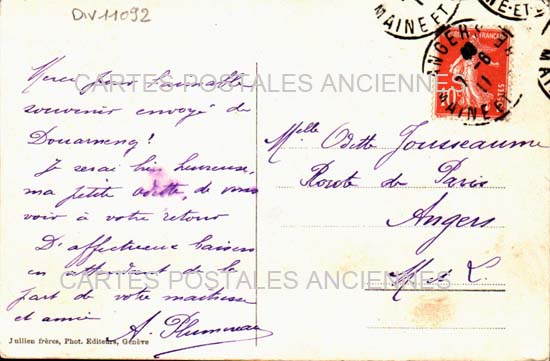 DIV11092
Merci pour l'aimable
souvenir envoyé de
Douarnenez!
Je serai bien heureuse,
ma petite Odette, de vous
voir à votre retour
D'affectueux baisers
en attendant de la
part de votre maitresse
et amie
A. Plumereau
Jullien frères, Phot. Editeurs, Genève
ANGERS
MAINE ET
FRANÇAISE
POSTES
10
Melle Odette Jousseaume
Route de Paris
Angers
M et L.
CARTES POSTALES ANCIENNES
CARTES POSTALES ANCIENNES